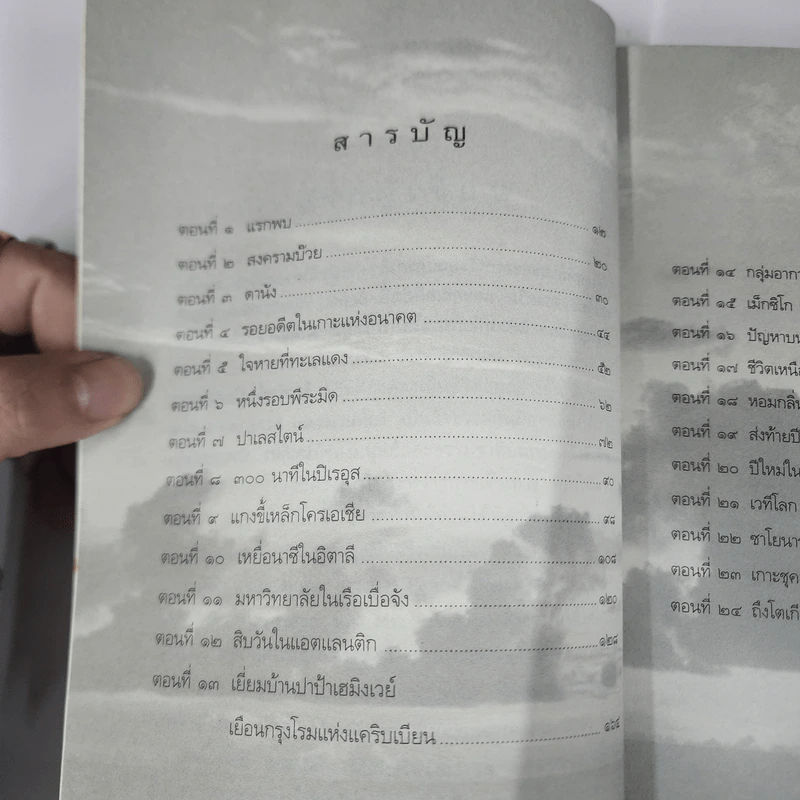 สารบัญ
ตอนที่ ๑ แรกพบ ๑๒
ตอนที่ ๒ สงครามบ๊วย ๒๐
ตอนที่ ๓ ดานัง ๓๐
ตอนที่ ๔ รอยอดีตในเกาะแห่งอนาคต ๔๔
ตอนที่ ๕ ใจหายที่ทะเลแดง ๕๒
ตอนที่ ๖ หนึ่งรอบพีระมิด ๖๒
ตอนที่ ๗ ปาเลสไตน์ ๗๒
ตอนที่ ๘ ๓๐๐ นาทีในปิเรอุส ๙๐
ตอนที่ ๙ แกงขี้เหล็กโครเอเชีย ๙๘
ตอนที่ ๑๐ เหยื่อนาซีในอิตาลี ๑๐๘
ตอนที่ ๑๑ มหาวิทยาลัยในเรือเบื่อจัง ๑๒๐
ตอนที่ ๑๒ สิบวันในแอตแลนติก ๑๒๘
ตอนที่ ๑๓ เยี่ยมบ้านปาป้าเฮมิงเวย์
เยือนกรุงโรมแห่งแคริบเบียน ๑๖๔
ตอนที่ ๑๔ กลุ่มอากา
ตอนที่ ๑๕ เม็กซิโก
ตอนที่ ๑๖ ปัญหาบน
ตอนที่ ๑๗ ชีวิตเหนือ
ตอนที่ ๑๘ หอมกลิ่น
ตอนที่ ๑๙ ส่งท้ายปี
ตอนที่ ๒๐ ปีใหม่ใน
ตอนที่ ๒๑ เวทีโลก
ตอนที่ ๒๒ ซาโยนา
ตอนที่ ๒๓ เกาะชุด
ตอนที่ ๒๔ ถึงโตเกี